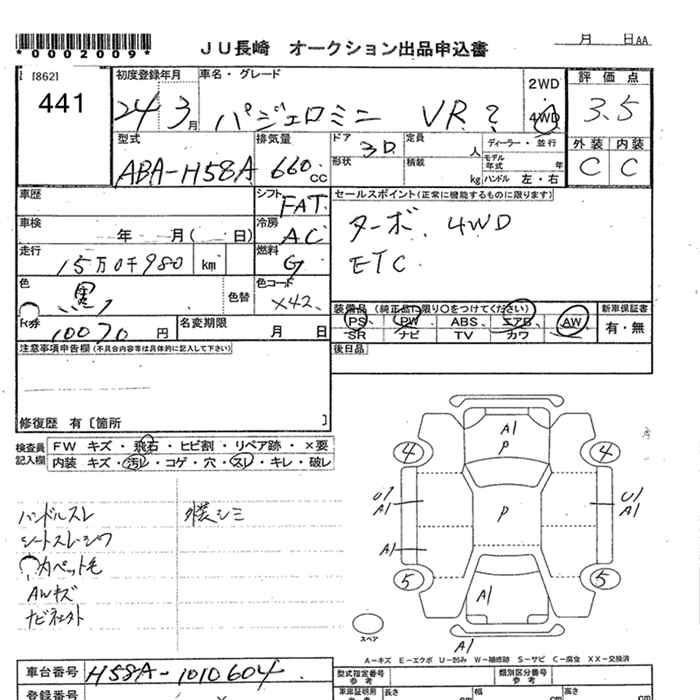 *0002009*
JU長崎 オークション出品申込書
月 日AA
[862]
441
初度登録年月
24 3月
車名・グレード
パジェロミニ VR ?
2WD
4WD
評価点
3.5
外装 内装
C C
型式
ABA-H58A
排気量
660cc
ドア
3D
形状
定員
人
積載
kg
ディーラー・並行
モデル年式 年
ハンドル 左・右
車歴
シフト
FAT
セールスポイント(正常に機能するものに限ります)
ターボ、4WD
ETC
車検
年 月( 日)
冷房
AC
走行
15万0千980 km
燃料
G
色
黒
色替
色コード
X42
R券
10070円
名変期限
月 日
装備品(純正品に限り○をつけてください)
PS PW ABS エアB AW
SR ナビ TV カワ
新車保証書
有・無
後日品
注意事項申告欄(不具合内容等は具体的に記入して下さい)
修復歴 有 [箇所 ]
検査員記入欄
FW キズ・飛石・ヒビ割・リペア跡・×要
内装 キズ・汚レ・コゲ・穴・スレ・キレ・破レ
ハンドルスレ
外装シミ
シートスレ・シワ
カーペット毛
AWキズ
A1
P
4 4
U1
A1
P
U1
A1
A1
5 5
A1
スペア
A1
A-キズ E-エクボ U-凹み W-補修跡 S-サビ C-腐食 XX-交換済
車台番号
H58A-1010604
型式指定番号
参考
類別区分番号
参考
登録番号
車庫証明用
参考
長さ
cm
幅
cm
高さ
cm